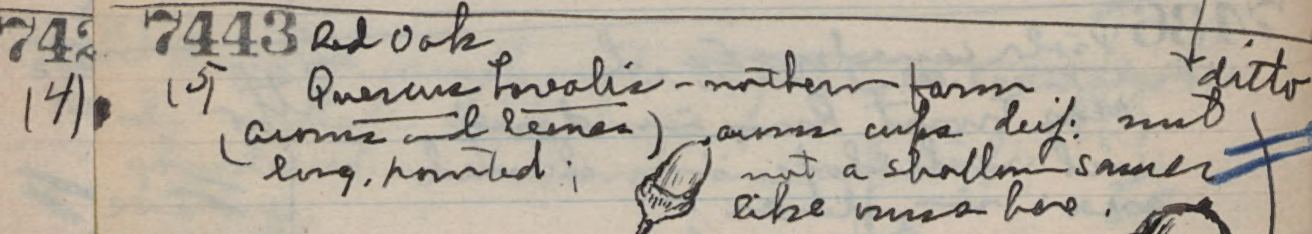 742 7443 Red Oak
(4) (5) Quercus borealis - northern form ditto
(acorns and leaves) acorn cups deep: nut
long, pointed; not a shallow saucer
like ours here.